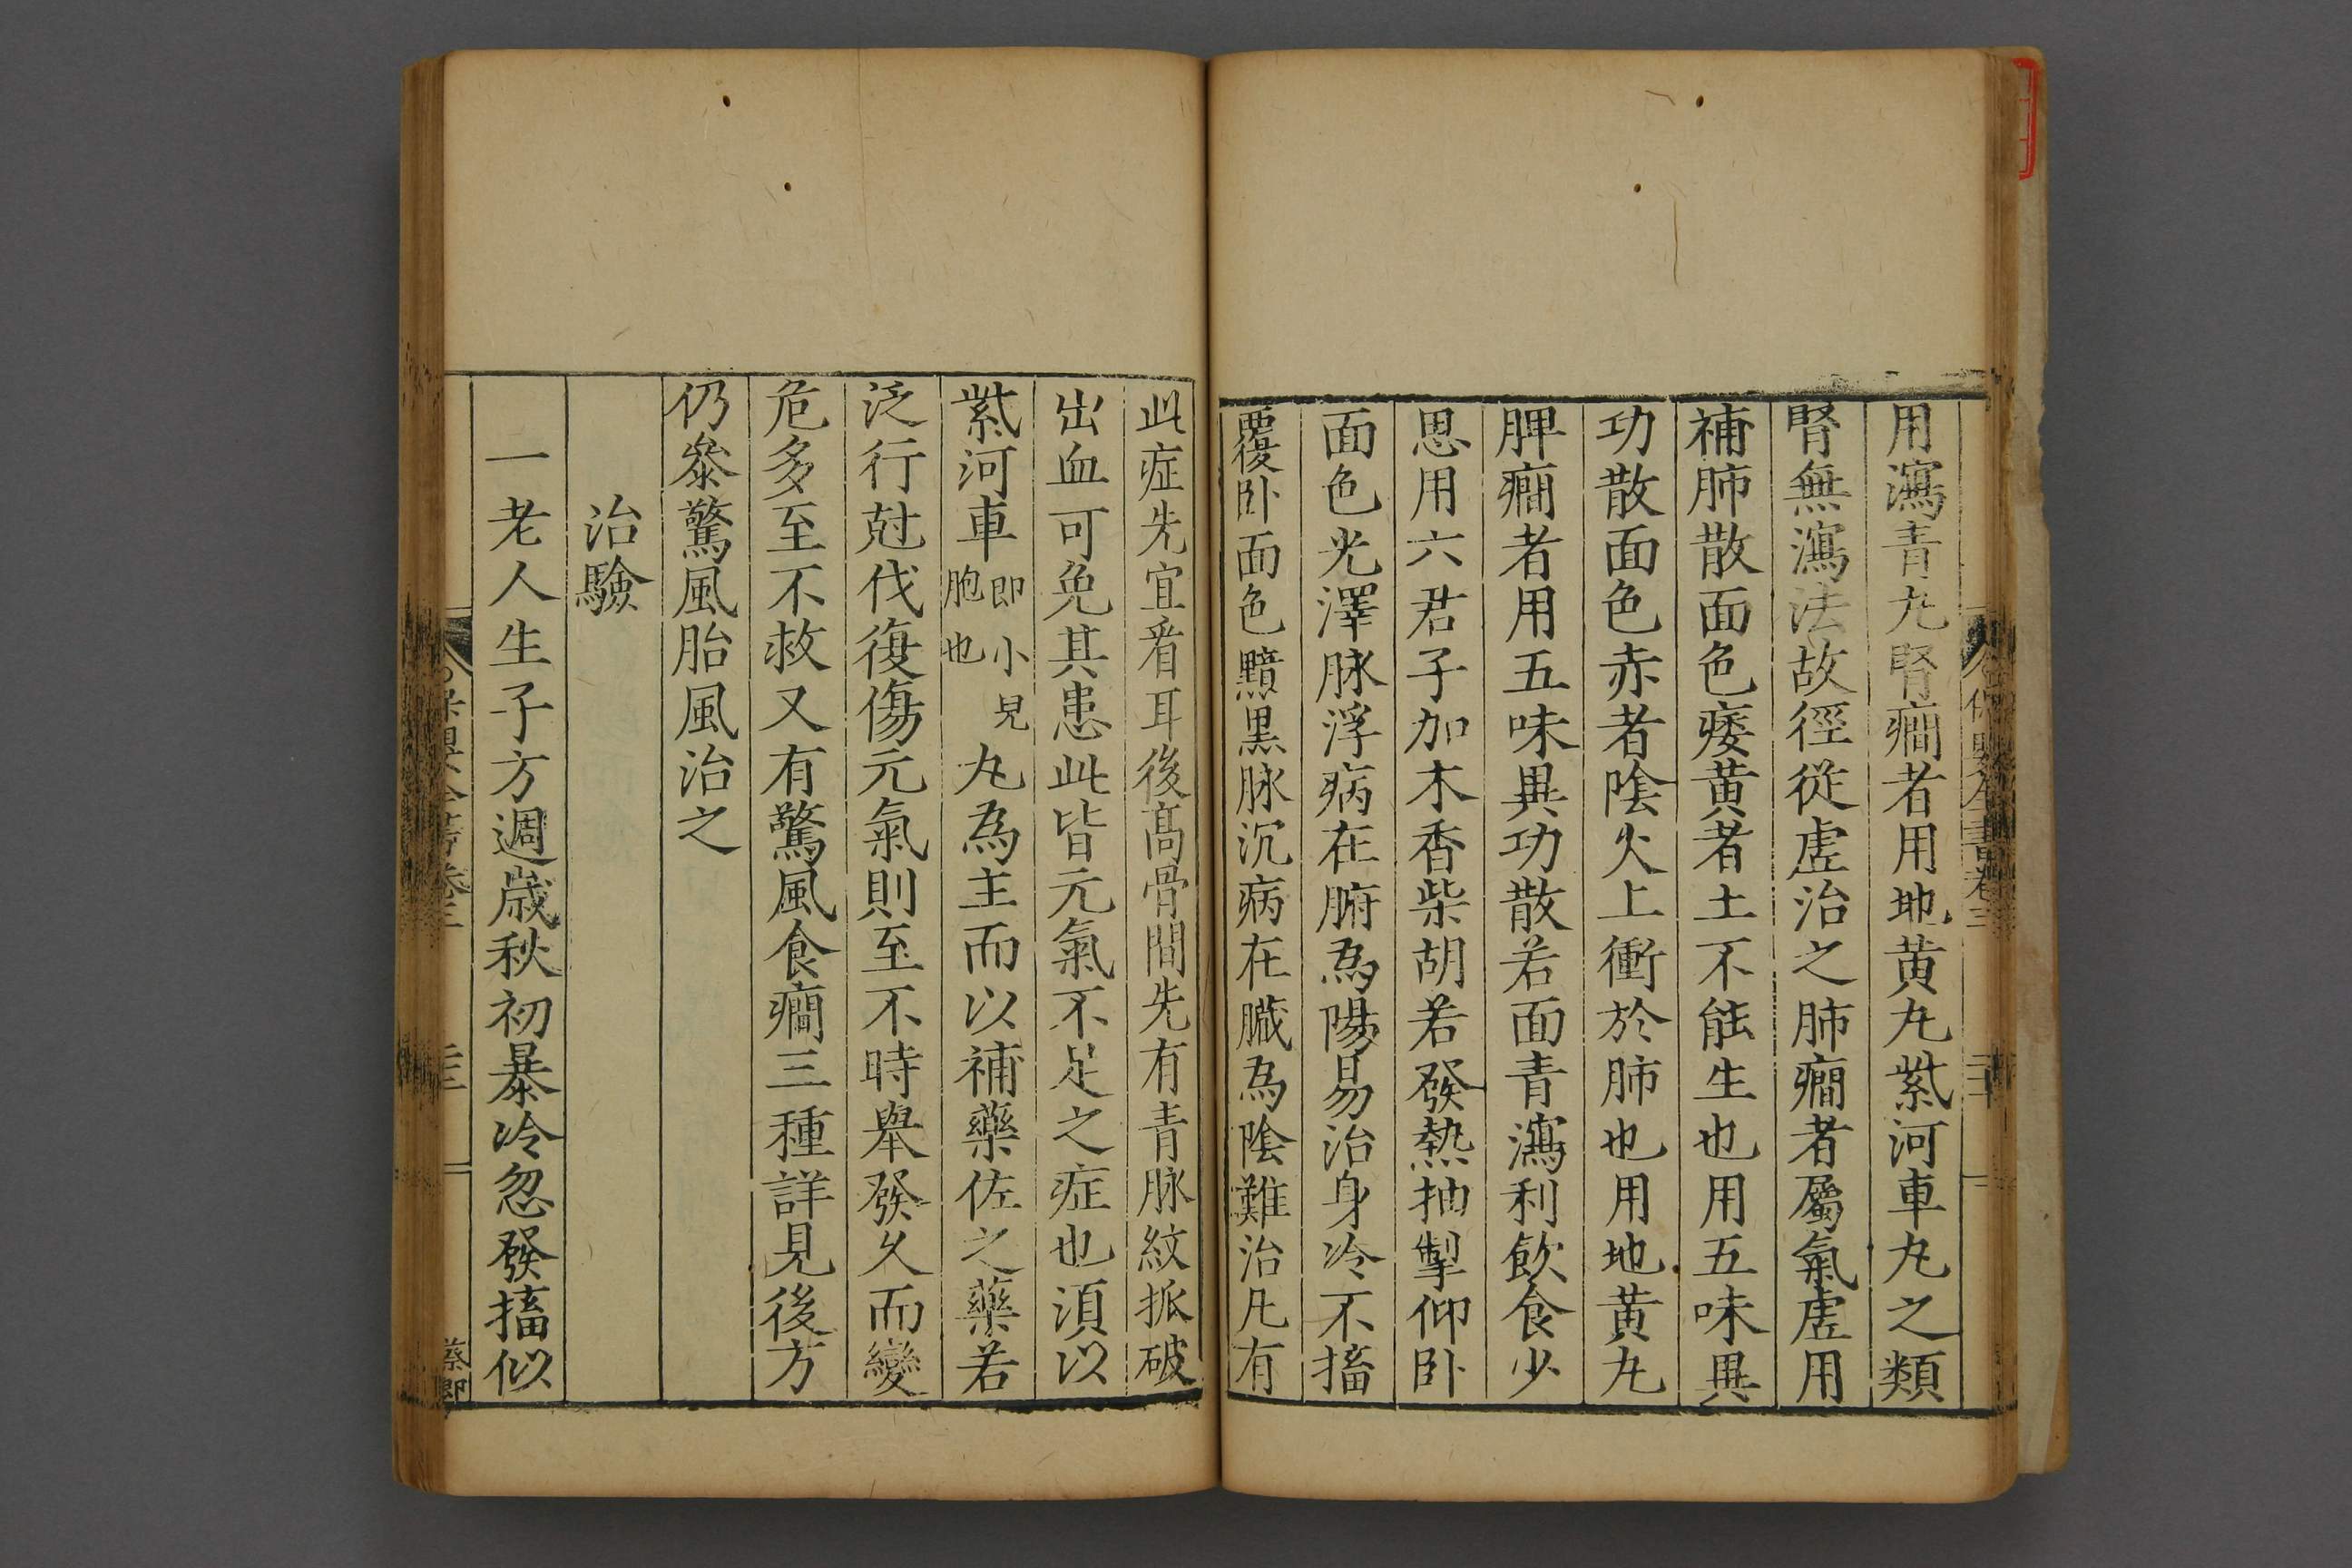 用瀉青丸腎癇者用地黄丸紫河車丸之類
腎無瀉法故徑從虚治之肺癇者屬氣虚用
補肺散面色痿黄者土不能生也用五味異
功散面色赤者陰火上衝於肺也用地黄丸
脾癇者用五味異功散若面青瀉利飲食少
思用六君子加木香柴胡若發熱抽掣仰卧
面色光澤脉浮病在腑為陽易治身冷不搐
覆卧面色黯黒脉沉病在臓為陰難治凡有
此症先宜看耳後髙骨間先有青脉紋抓破
出血可免其患此皆元氣不足之症也湏以
紫河車即小兒胞也丸為主而以補藥佐之藥若
泛行尅伐復傷元氣則至不時舉發久而變
危多至不救又有驚風食癇三種詳見後方
仍叅驚風胎風治之
治驗
一老人生子方週歳秋初暴冷忽發搐似